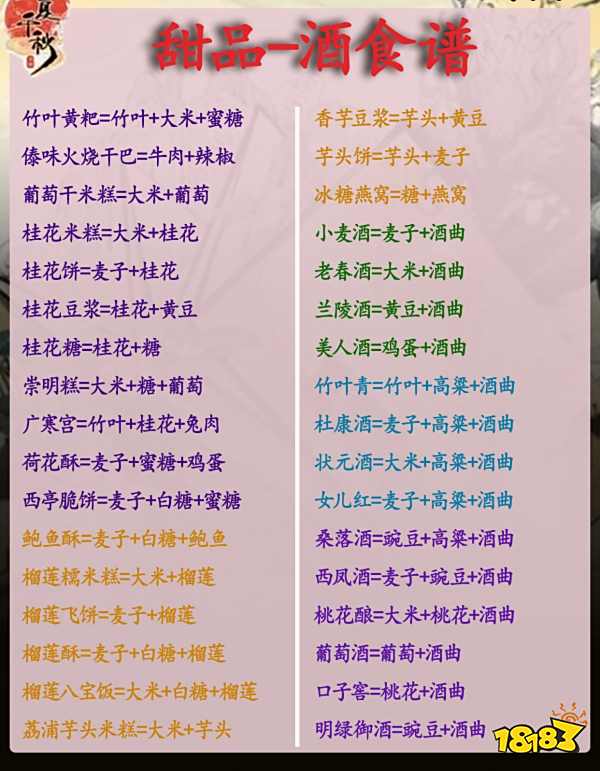 夏千秋
甜品-酒食谱
竹叶黄粑=竹叶+大米+蜜糖
傣味火烧干巴=牛肉+辣椒
葡萄干米糕=大米+葡萄
桂花米糕=大米+桂花
桂花饼=麦子+桂花
桂花豆浆=桂花+黄豆
桂花糖=桂花+糖
崇明糕=大米+糖+葡萄
广寒宫=竹叶+桂花+兔肉
荷花酥=麦子+蜜糖+鸡蛋
西亭脆饼=麦子+白糖+蜜糖
鲍鱼酥=麦子+白糖+鲍鱼
榴莲糯米糕=大米+榴莲
榴莲飞饼=麦子+榴莲
榴莲酥=麦子+白糖+榴莲
榴莲八宝饭=大米+白糖+榴莲
荔浦芋头米糕=大米+芋头
香芋豆浆=芋头+黄豆
芋头饼=芋头+麦子
冰糖燕窝=糖+燕窝
小麦酒=麦子+酒曲
老春酒=大米+酒曲
兰陵酒=黄豆+酒曲
美人酒=鸡蛋+酒曲
竹叶青=竹叶+高粱+酒曲
杜康酒=麦子+高粱+酒曲
状元酒=大米+高粱+酒曲
女儿红=麦子+高粱+酒曲
桑落酒=豌豆+高粱+酒曲
西凤酒=麦子+豌豆+酒曲
桃花酿=大米+桃花+酒曲
葡萄酒=葡萄+酒曲
口子窖=桃花+酒曲
明绿御酒=豌豆+酒曲
18183